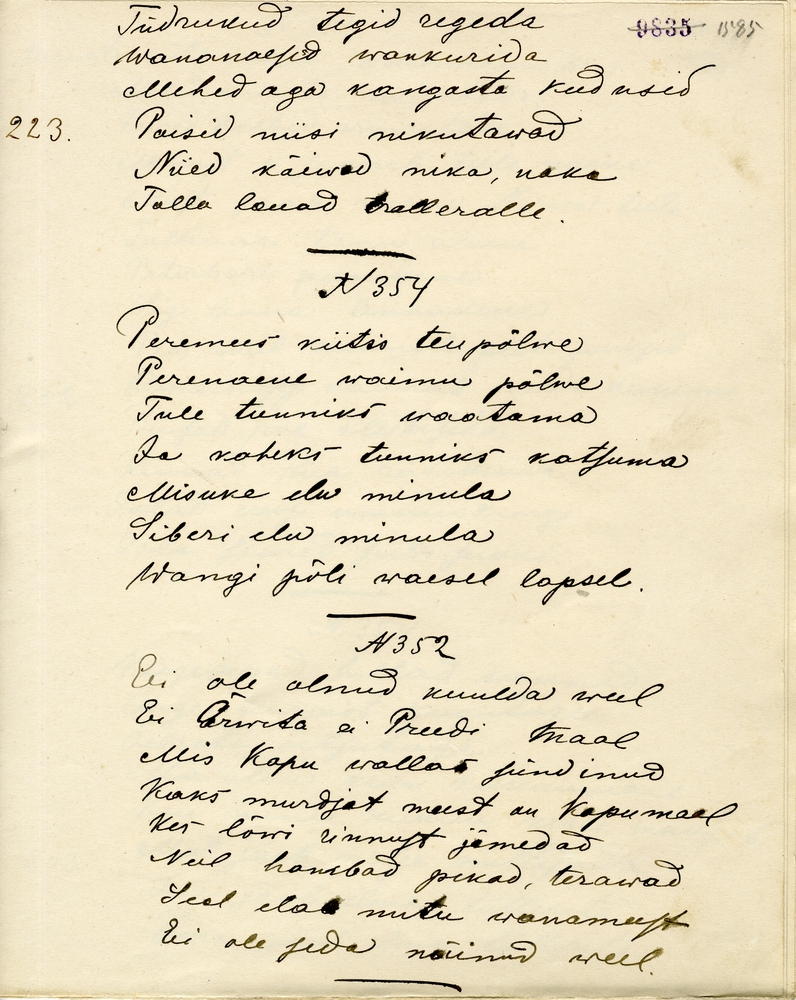 9835 1585
Tüdrukud tegid regeda
Wananaesed wankurida
Mehed aga kangasta kudusid
223. Poisid niisi nikutawad
Niied käiwad nika, naka
Talla lauad tralleralle.
N 354
Peremees kiitis teu põlwe
Perenaene waimu põlwe
Tule tunniks waatama
Ja kaheks tunniks katsuma
Misuke elu minula
Siberi elu minula
Wangi põli waesel lapsel.
N 352
Ei ole olnud kuulda weel
Ei Ärwita ei Preedi maal
Mis Kapu wallas sündinud
Kaks murdjat meest on Kapumaal
Kes lõwi rinnust jämedad
Neil hambad pikad, terawad
Seal elab mitu wanameest
Ei ole seda näinud weel.